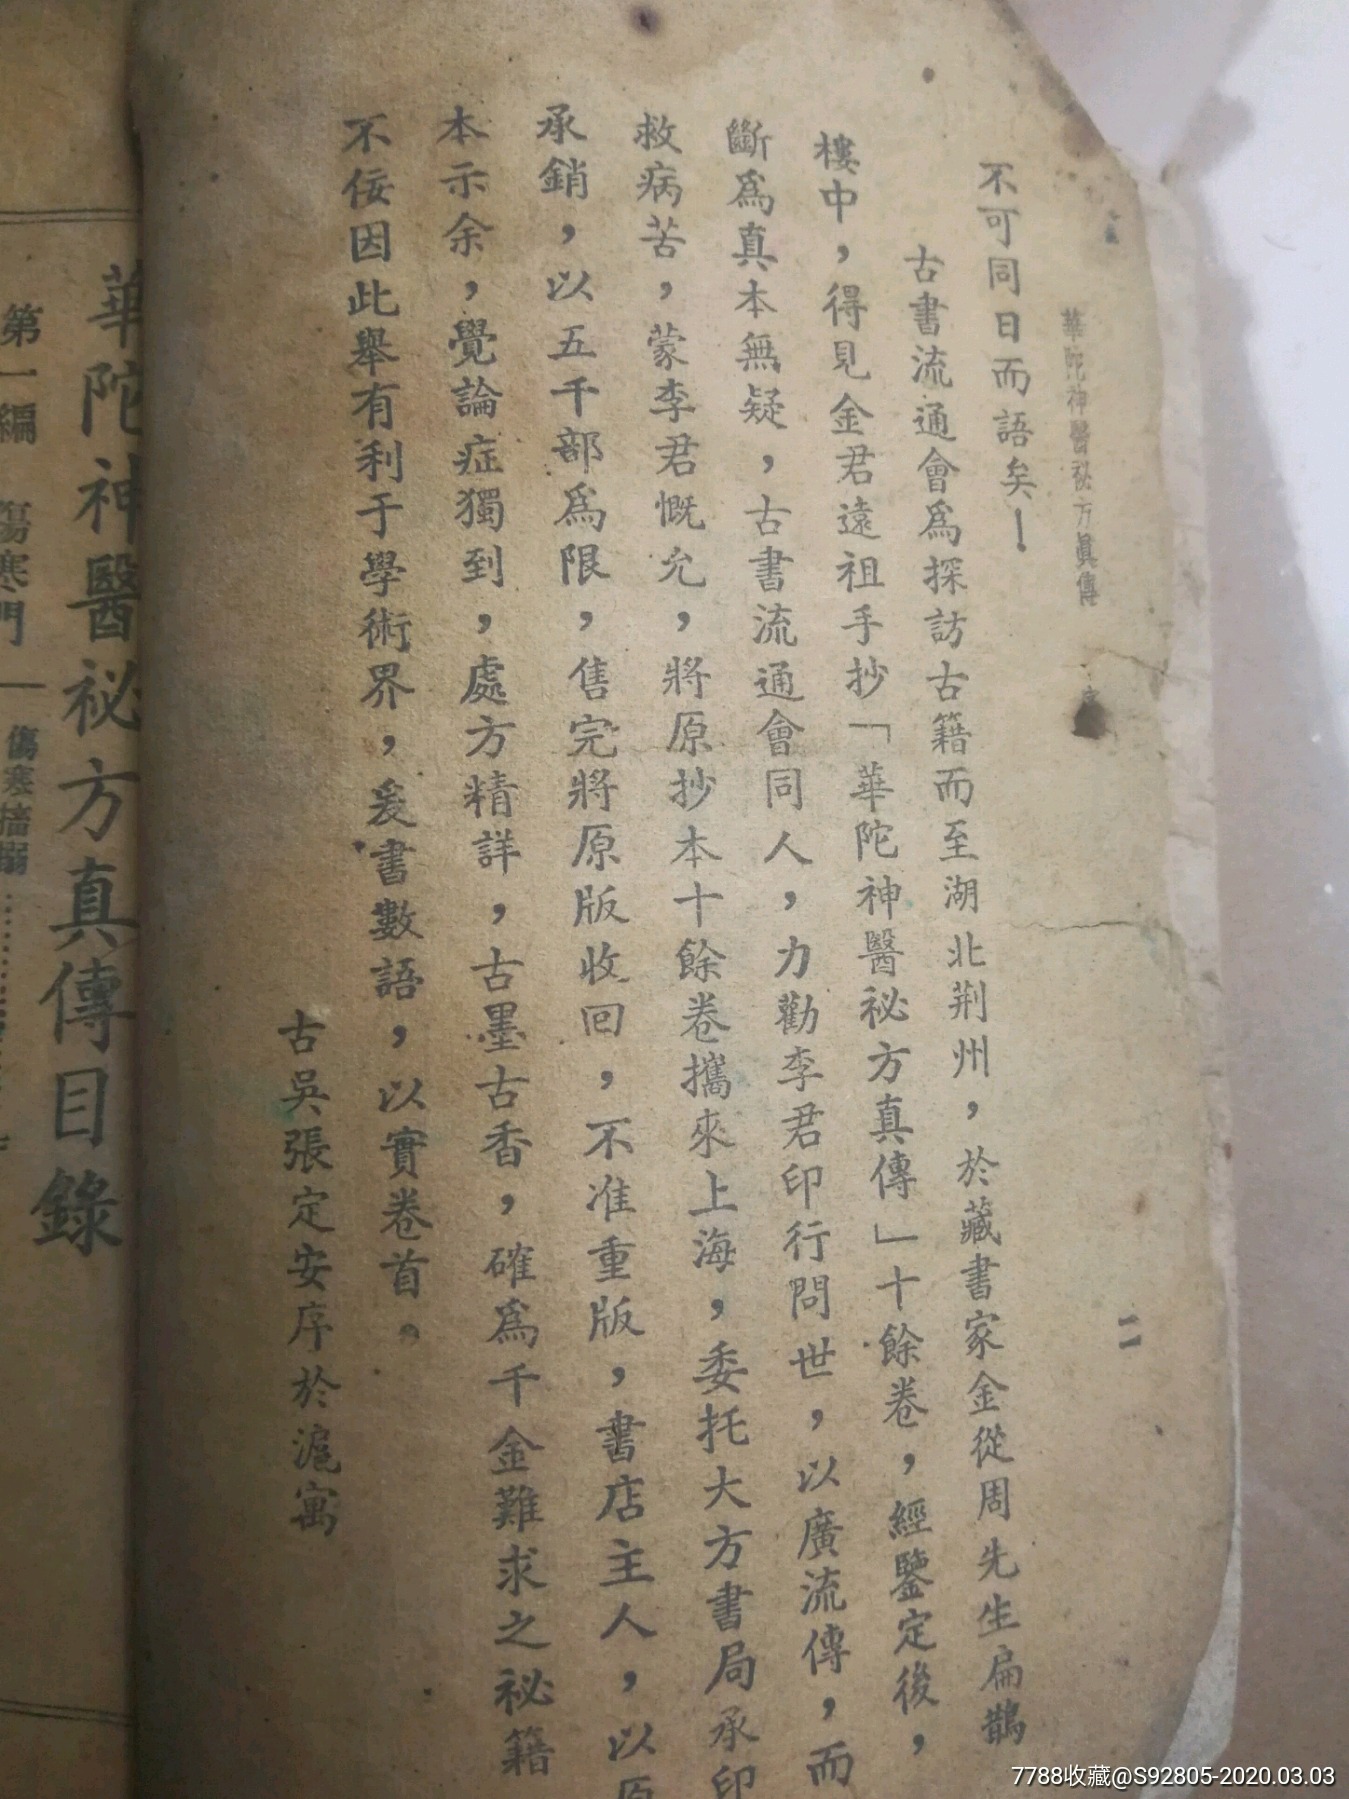 華陀神醫祕方眞傳
序
二
不可同日而語矣！
古書流通會爲探訪古籍而至湖北荆州，於藏書家金從周先生扁鵲
樓中，得見金君遠祖手抄「華陀神醫祕方真傳」十餘卷，經鑒定後，
斷爲真本無疑，古書流通會同人，力勸李君印行問世，以廣流傳，而
救病苦，蒙李君慨允，將原抄本十餘卷攜來上海，委托大方書局承印
承銷，以五千部爲限，售完將原版收回，不准重版，書店主人，以原
本示余，覺論症獨到，處方精詳，古墨古香，確爲千金難求之祕籍
不佞因此舉有利于學術界，爰書數語，以實卷首。
古吳張定安序於滬寓
華陀神醫祕方真傳目錄
第一編 傷寒門
7788收藏@S92805-2020.03.03